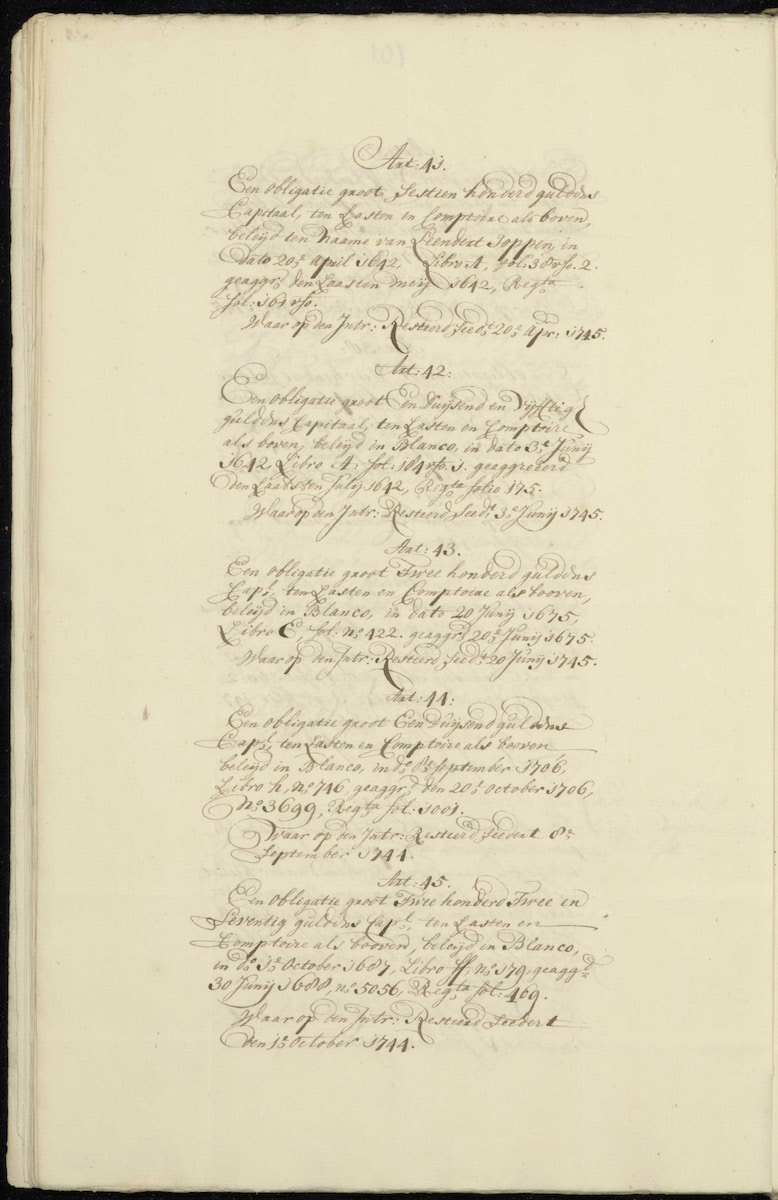 Art: 41.
Een obligatie groot, Sestien honderd guldens
Capitaal, ten Lasten en Comptoire als boven,
beleijd ten Naame van Leendert Joppen, in
dato 20e. April 1642, Libro A, fol: 38 vso. 2.
geaggrt. den Laasten meij 1642, Regta.
fol: 161 vso.
Waar op den Intr: Resteerd, seedt. 20e. Apr: 1745.
Art: 42:
Een obligatie groot Een Duijsend en Vijfftig
guldens Capitaal, ten Lasten en Comptoire
als boven, beleijd in Blanco, in dato 3e. Junij
1642, Libro A: fol: 184 vso. 1. geaggreeerd
den Laatsten Julij 1642, Regta. folio 175.
Waar op den Intr: Resteerd, seedt. 3e. Junij 1745.
Art: 43.
Een obligatie groot Twee honderd guldens
Capl., ten Lasten en Comptoire als booven,
beleijd in Blanco, in dato 20 Junij 1675,
Libro E, fol. No. 422. geaggrt. 20e. Junij 1675.
Waar op den Intr: Resteerd, seedt. 20 Junij 1745.
Art: 44:
Een obligatie groot Een Duijsend guldens
Capl., ten Lasten en Comptoire als boven
beleijd in Blanco, in do. 8e. September 1706,
Libro h, No. 746, geaggrd. den 20e. October 1706,
No. 3699, Regta. fol: 1001.
Waar op den Intr: Resteerd, seedert 8e.
September 1744.
Art: 45.
Een obligatie groot Twee honderd Twee en
Seventig guldens Capl., ten Lasten en
Comptoire als booven, beleijd in Blanco,
in do. 1e. October 1687, Libro ff, No. 179, geaggd.
30 Junij 1688, No. 5056, Regta. fol: 469.
Waar op den Intr: Resteerd seedert
den 1e. October 1744.